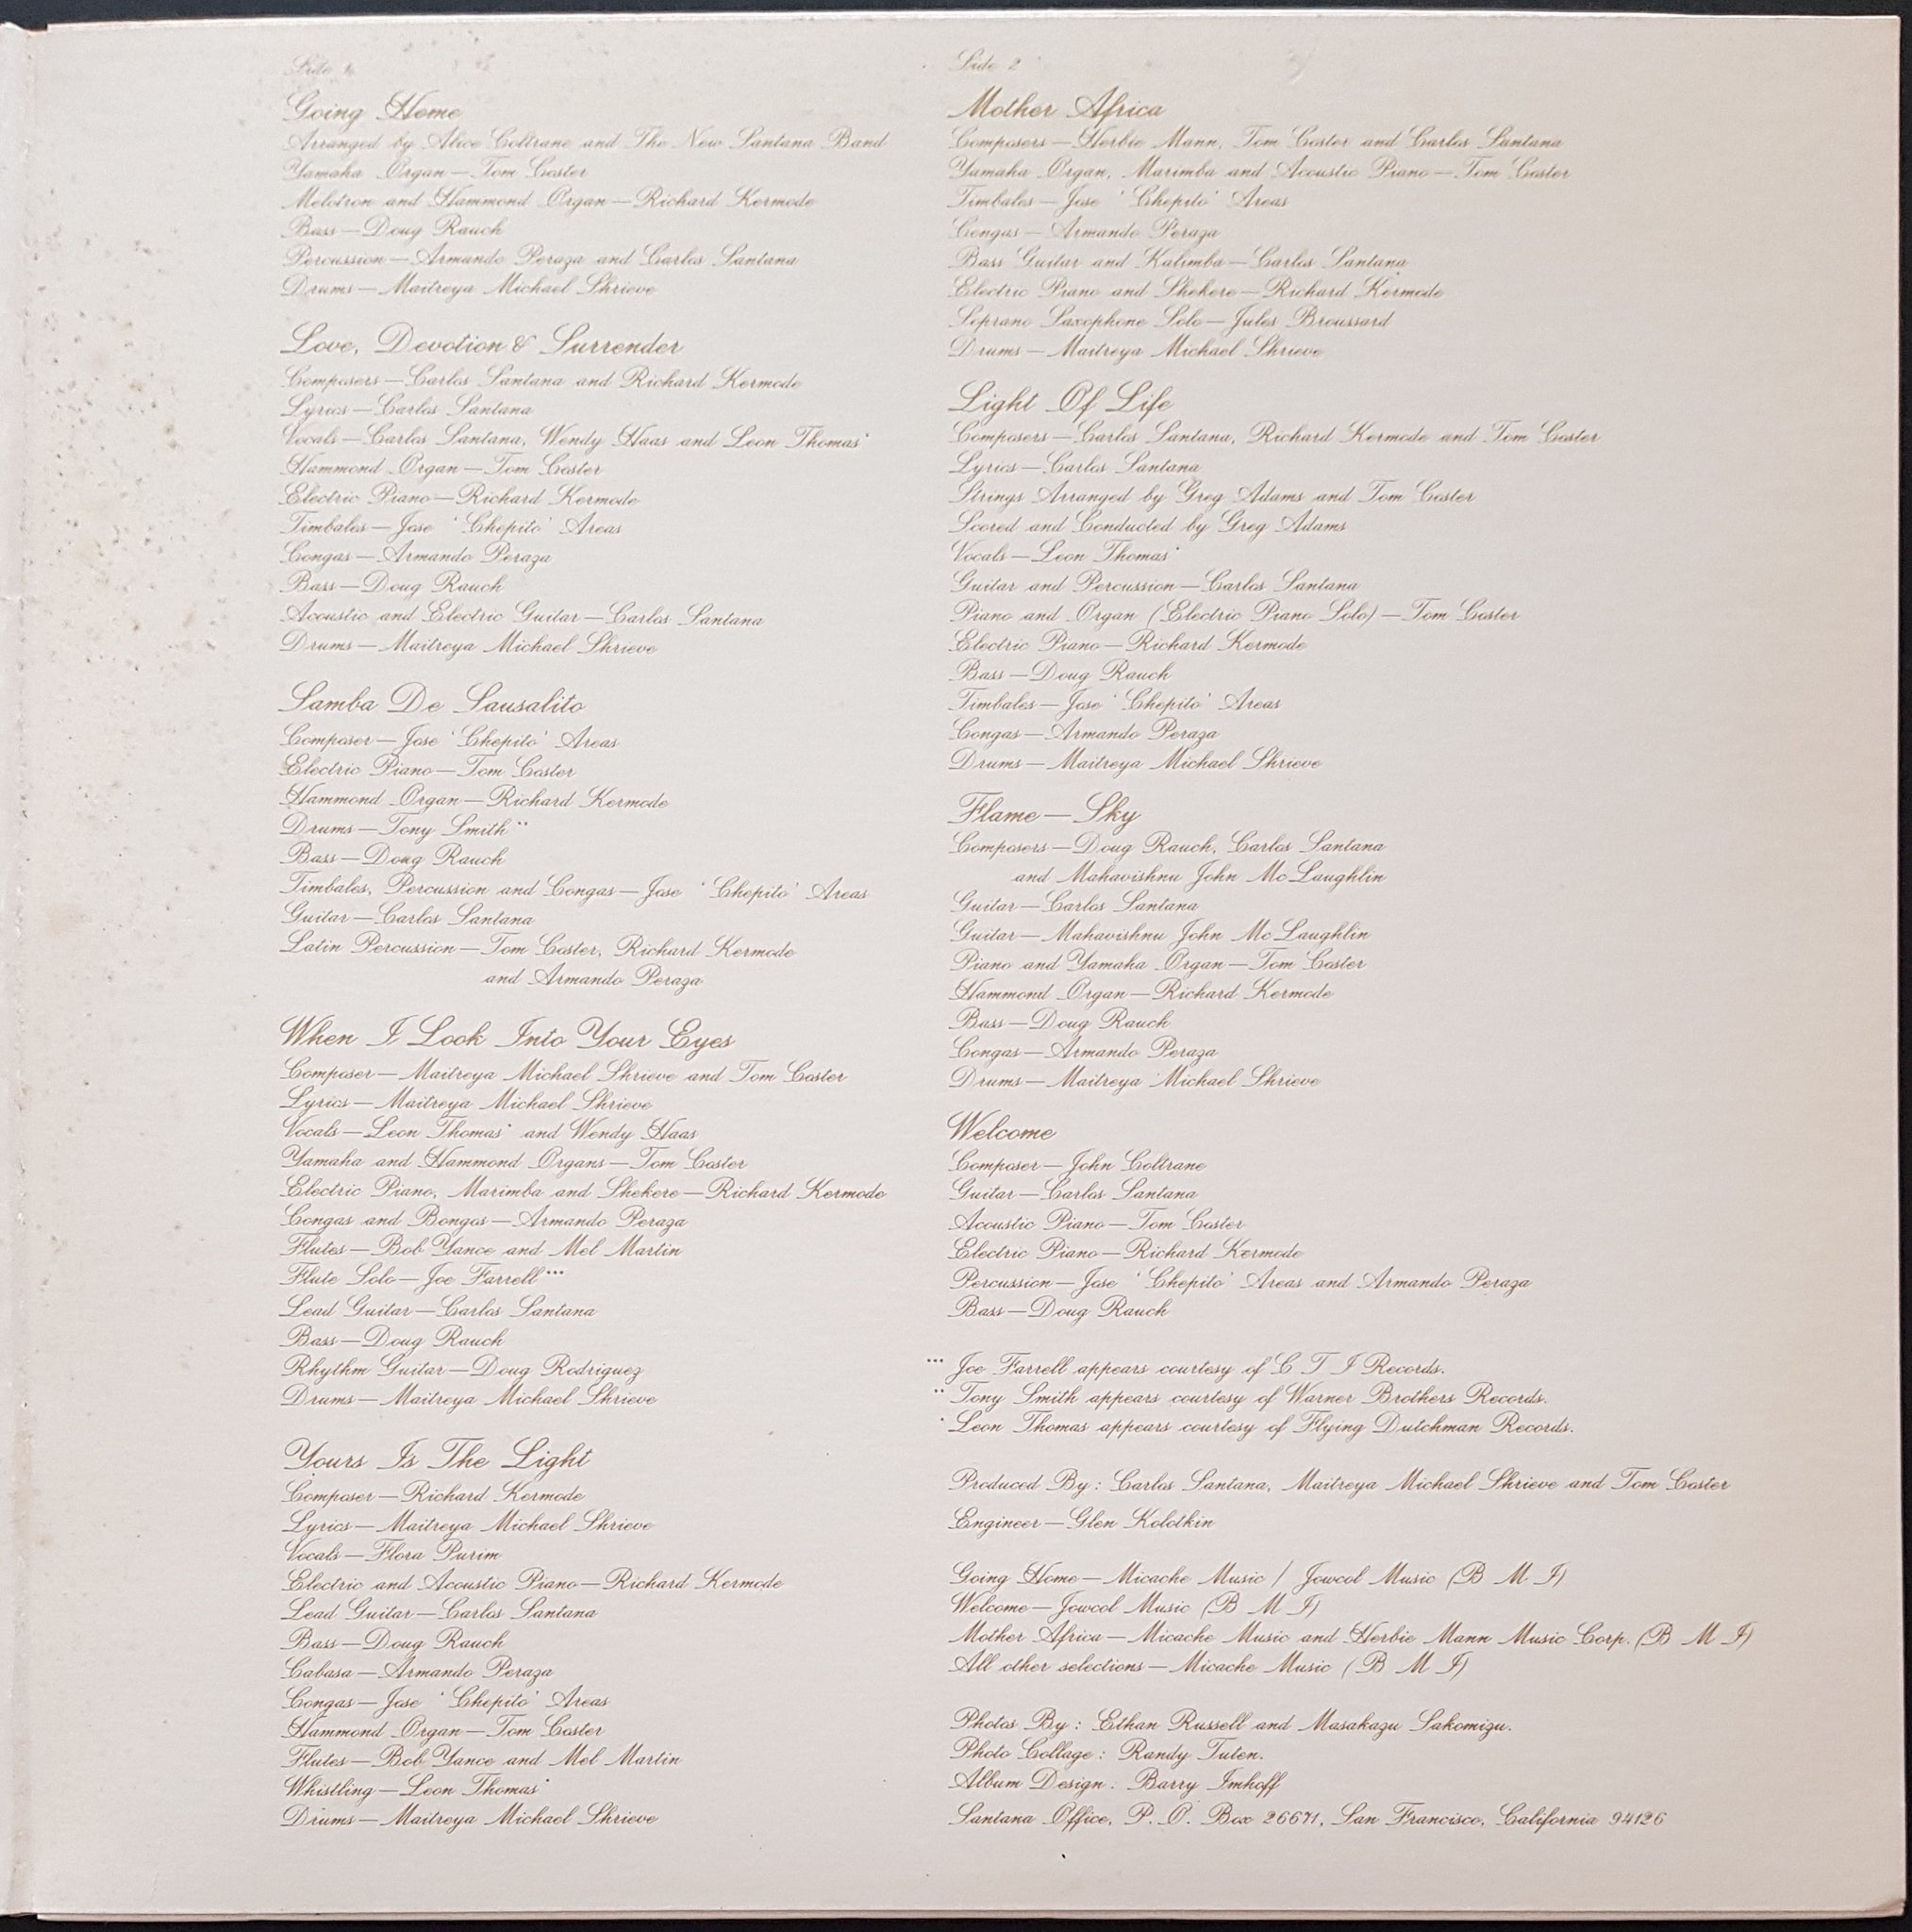 Side 1
Going Home
Arranged by Alice Coltrane and The New Santana Band
Yamaha Organ — Tom Coster
Melotron and Hammond Organ — Richard Kermode
Bass — Doug Rauch
Percussion — Armando Peraza and Carlos Santana
Drums — Maitreya Michael Shrieve
Love, Devotion & Surrender
Composers — Carlos Santana and Richard Kermode
Lyrics — Carlos Santana
Vocals — Carlos Santana, Wendy Haas and Leon Thomas*
Hammond Organ — Tom Coster
Electric Piano — Richard Kermode
Timbales — Jose 'Chepito' Areas
Congas — Armando Peraza
Bass — Doug Rauch
Acoustic and Electric Guitar — Carlos Santana
Drums — Maitreya Michael Shrieve
Samba De Sausalito
Composer — Jose 'Chepito' Areas
Electric Piano — Tom Coster
Hammond Organ — Richard Kermode
Drums — Tony Smith**
Bass — Doug Rauch
Timbales, Percussion and Congas — Jose 'Chepito' Areas
Guitar — Carlos Santana
Latin Percussion — Tom Coster, Richard Kermode
and Armando Peraza
When I Look Into Your Eyes
Composer — Maitreya Michael Shrieve and Tom Coster
Lyrics — Maitreya Michael Shrieve
Vocals — Leon Thomas* and Wendy Haas
Yamaha and Hammond Organs — Tom Coster
Electric Piano, Marimba and Shekere — Richard Kermode
Congas and Bongos — Armando Peraza
Flutes — Bob Yance and Mel Martin
Flute Solo — Joe Farrell***
Lead Guitar — Carlos Santana
Bass — Doug Rauch
Rhythm Guitar — Doug Rodriguez
Drums — Maitreya Michael Shrieve
Yours Is The Light
Composer — Richard Kermode
Lyrics — Maitreya Michael Shrieve
Vocals — Flora Purim
Electric and Acoustic Piano — Richard Kermode
Lead Guitar — Carlos Santana
Bass — Doug Rauch
Cabasa — Armando Peraza
Congas — Jose 'Chepito' Areas
Hammond Organ — Tom Coster
Flutes — Bob Yance and Mel Martin
Whistling — Leon Thomas*
Drums — Maitreya Michael Shrieve
Side 2
Mother Africa
Composers — Herbie Mann, Tom Coster and Carlos Santana
Yamaha Organ, Marimba and Acoustic Piano — Tom Coster
Timbales — Jose 'Chepito' Areas
Congas — Armando Peraza
Bass Guitar and Kalimba — Carlos Santana
Electric Piano and Shekere — Richard Kermode
Soprano Saxophone Solo — Jules Broussard
Drums — Maitreya Michael Shrieve
Light Of Life
Composers — Carlos Santana, Richard Kermode and Tom Coster
Lyrics — Carlos Santana
Strings Arranged by Greg Adams and Tom Coster
Scored and Conducted by Greg Adams
Vocals — Leon Thomas*
Guitar and Percussion — Carlos Santana
Piano and Organ (Electric Piano Solo) — Tom Coster
Electric Piano — Richard Kermode
Bass — Doug Rauch
Timbales — Jose 'Chepito' Areas
Congas — Armando Peraza
Drums — Maitreya Michael Shrieve
Flame — Sky
Composers — Doug Rauch, Carlos Santana
and Mahavishnu John McLaughlin
Guitar — Carlos Santana
Guitar — Mahavishnu John McLaughlin
Piano and Yamaha Organ — Tom Coster
Hammond Organ — Richard Kermode
Bass — Doug Rauch
Congas — Armando Peraza
Drums — Maitreya Michael Shrieve
Welcome
Composer — John Coltrane
Guitar — Carlos Santana
Acoustic Piano — Tom Coster
Electric Piano — Richard Kermode
Percussion — Jose 'Chepito' Areas and Armando Peraza
Bass — Doug Rauch
*** Joe Farrell appears courtesy of C T I Records.
** Tony Smith appears courtesy of Warner Brothers Records.
* Leon Thomas appears courtesy of Flying Dutchman Records.
Produced By: Carlos Santana, Maitreya Michael Shrieve and Tom Coster
Engineer — Glen Kolotkin
Going Home — Micache Music / Jowcol Music (B M I)
Welcome — Jowcol Music (B M I)
Mother Africa — Micache Music and Herbie Mann Music Corp. (B M I)
All other selections — Micache Music (B M I)
Photos By: Ethan Russell and Masakazu Sakomizu.
Photo Collage: Randy Tuten.
Album Design: Barry Imhoff
Santana Office, P. O. Box 26671, San Francisco, California 94126